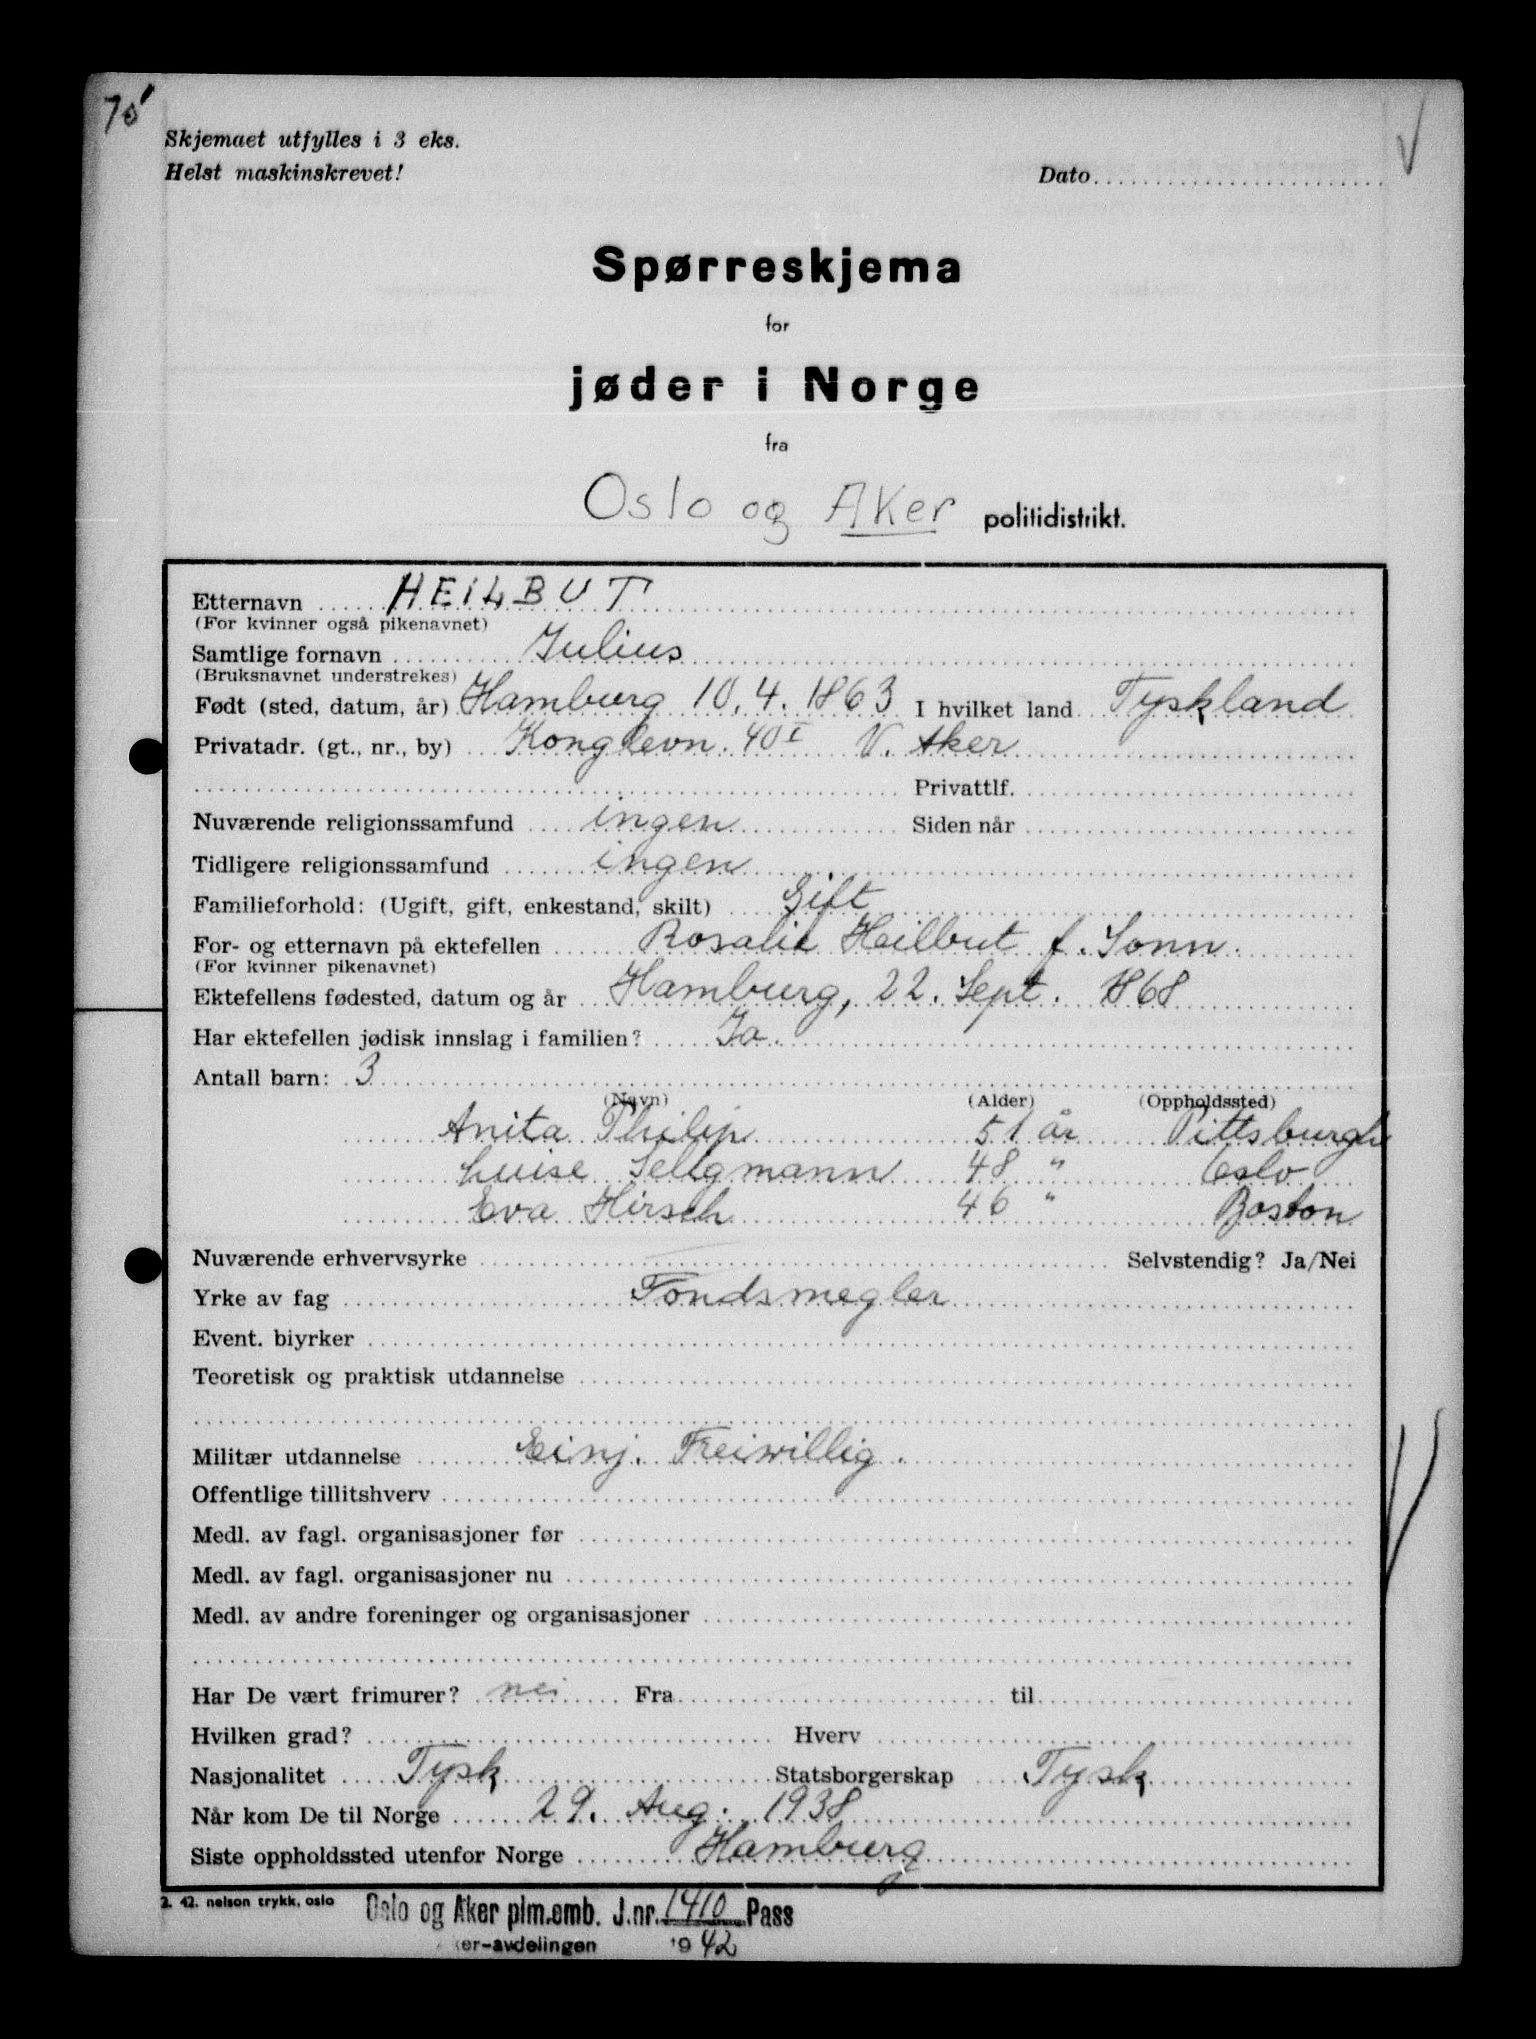 75
Skjemaet utfylles i 3 eks.
Helst maskinskrevet!
Dato
Spørreskjema
for
jøder i Norge
fra
Oslo og Aker politidistrikt.
Etternavn HEILBUT
(For kvinner også pikenavnet)
Samtlige fornavn Julius
(Bruksnavnet understrekes)
Født (sted, datum, år) Hamburg 10. 4. 1863 I hvilket land Tyskland
Privatadr. (gt., nr., by) Konglevn. 40 I V. Aker
Privattlf.
Nuværende religionssamfund ingen Siden når
Tidligere religionssamfund ingen
Familieforhold: (Ugift, gift, enkestand, skilt) Gift
For- og etternavn på ektefellen Rosalie Heilbut f. Sonn.
(For kvinner pikenavnet)
Ektefellens fødested, datum og år Hamburg, 22. Sept. 1868
Har ektefellen jødisk innslag i familien? Ja.
Antall barn: 3
(Navn) (Alder) (Oppholdssted)
Anita Philip 51 år Pittsburgh
Luise Seligmann 48 " Oslo
Eva Hirsch 46 " Boston
Nuværende erhvervsyrke Selvstendig? Ja/Nei
Yrke av fag Fondsmegler
Event. biyrker
Teoretisk og praktisk utdannelse
Militær utdannelse Einj. Freiwillig.
Offentlige tillitshverv
Medl. av fagl. organisasjoner før
Medl. av fagl. organisasjoner nu
Medl. av andre foreninger og organisasjoner
Har De vært frimurer? nei Fra til
Hvilken grad? Hverv
Nasjonalitet Tysk Statsborgerskap Tysk
Når kom De til Norge 29. Aug. 1938
Siste oppholdssted utenfor Norge Hamburg
2. 42. nelson trykk, oslo
Oslo og Aker plm.emb. J.nr. 1410 Pass
ker-avdelingen 1942